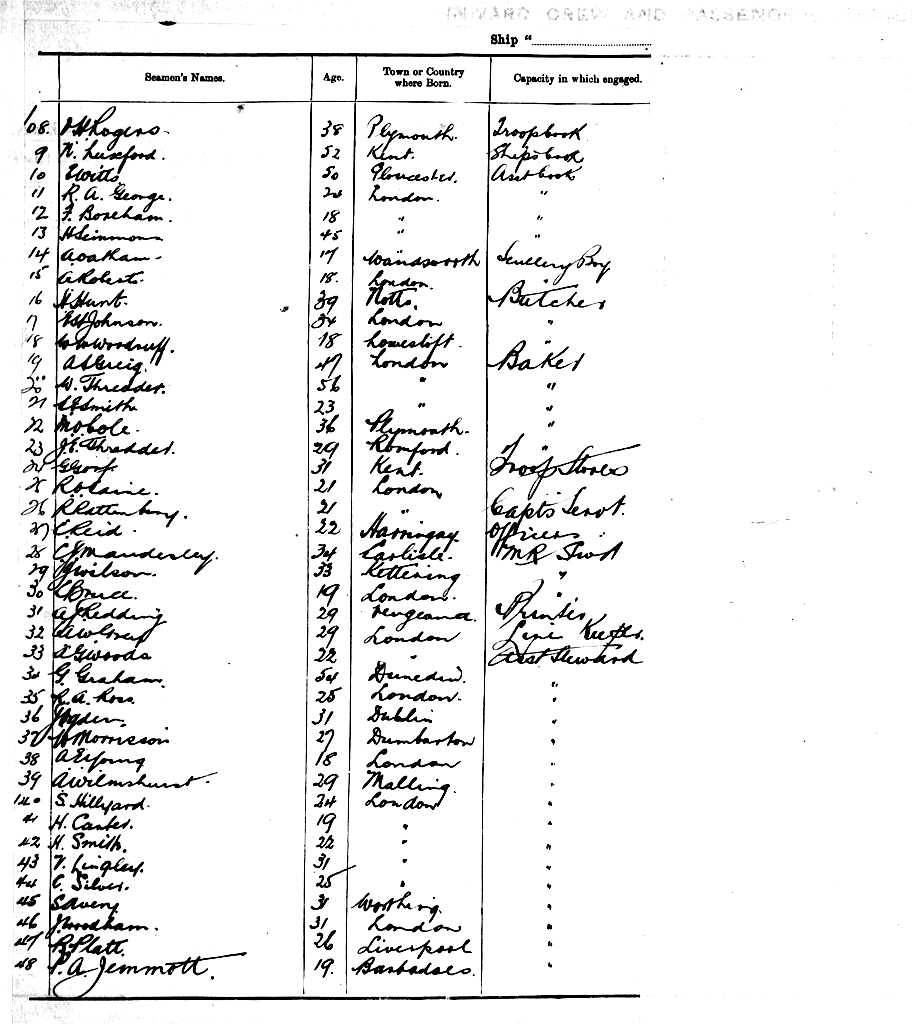 INWARD CREW AND PASSENGER
Ship "
Seamen's Names. Age. Town or Country where Born. Capacity in which engaged.
108. Rogers 38 Plymouth. Troopcook
9 N. Luxford. 52 Kent. Shipscook
10 E Witts 50 Gloucester. Asst cook
11 R. A. George. 24 London. "
12 F. Boreham. 18 " "
13 H Simmons 45 " "
14 A Oakham. 17 Wandsworth Scullery Boy
15 A Roberts. 18. London. "
16 H Hunt. 39 Notts. Butcher
17 Johnson. 34 London "
18 Woodruff. 18 Lowestoft. "
19 A S Greig. 47 London Baker
20 W. Thredder. 56 " "
21 Smith 23 " "
22 Cole. 36 Plymouth. "
23 J. E. Thredder. 29 Romford. "
24 31 Kent. Troop Stores
25 21 London
26 R Rattenbury. 21 " Capt's Servt.
27 C Reid 22 Harringay Officers
28 Maudesley. 34 Carlisle. MR Svt
29 Wilson. 33 Kettering "
30 Bruce. 19 London. "
31 A Redding 29 Printer
32 A W 29 London Keeper.
33 A G Woods 22 " Asst Steward
34 G. Graham. 54 Dunedin. "
35 R. A. Ross. 25 London. "
36 J Ogden. 31 Dublin "
37 Morrisson 27 Dumbarton "
38 A E Young 18 London "
39 A Wilmshurst. 29 Malling. "
140 S. Hillyard. 24 London "
41 H. Canter. 19 " "
42 H. Smith. 22 " "
43 V. Lingley. 31 " "
44 C. Silver. 25 " "
45 S Avery 31 Worthing. "
46 J Woodham. 31 London "
47 R. Platt. 26 Liverpool "
48 P. A. Jemmott. 19. Barbadoes. "